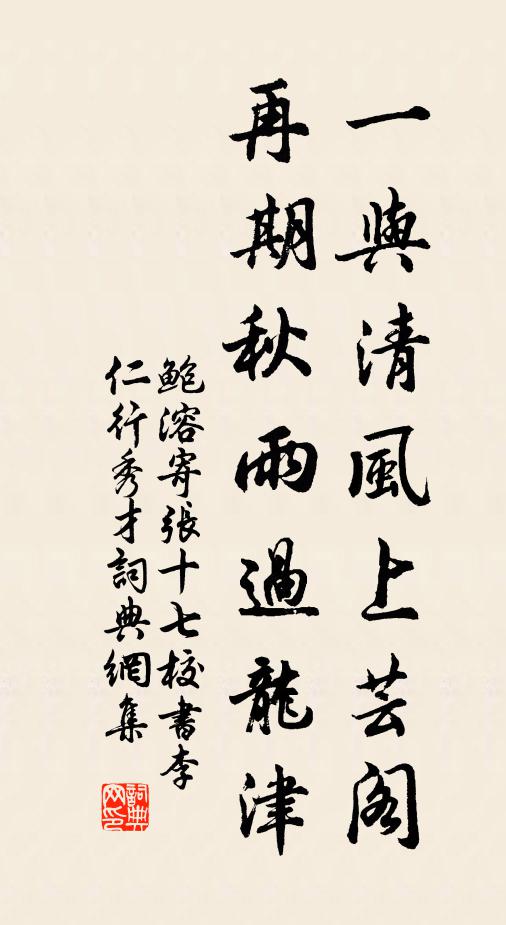 一與清風上芸閣
再期秋雨過龍津
鮑溶寄張十七校書李
仁行秀才詞典網集
詞典网印